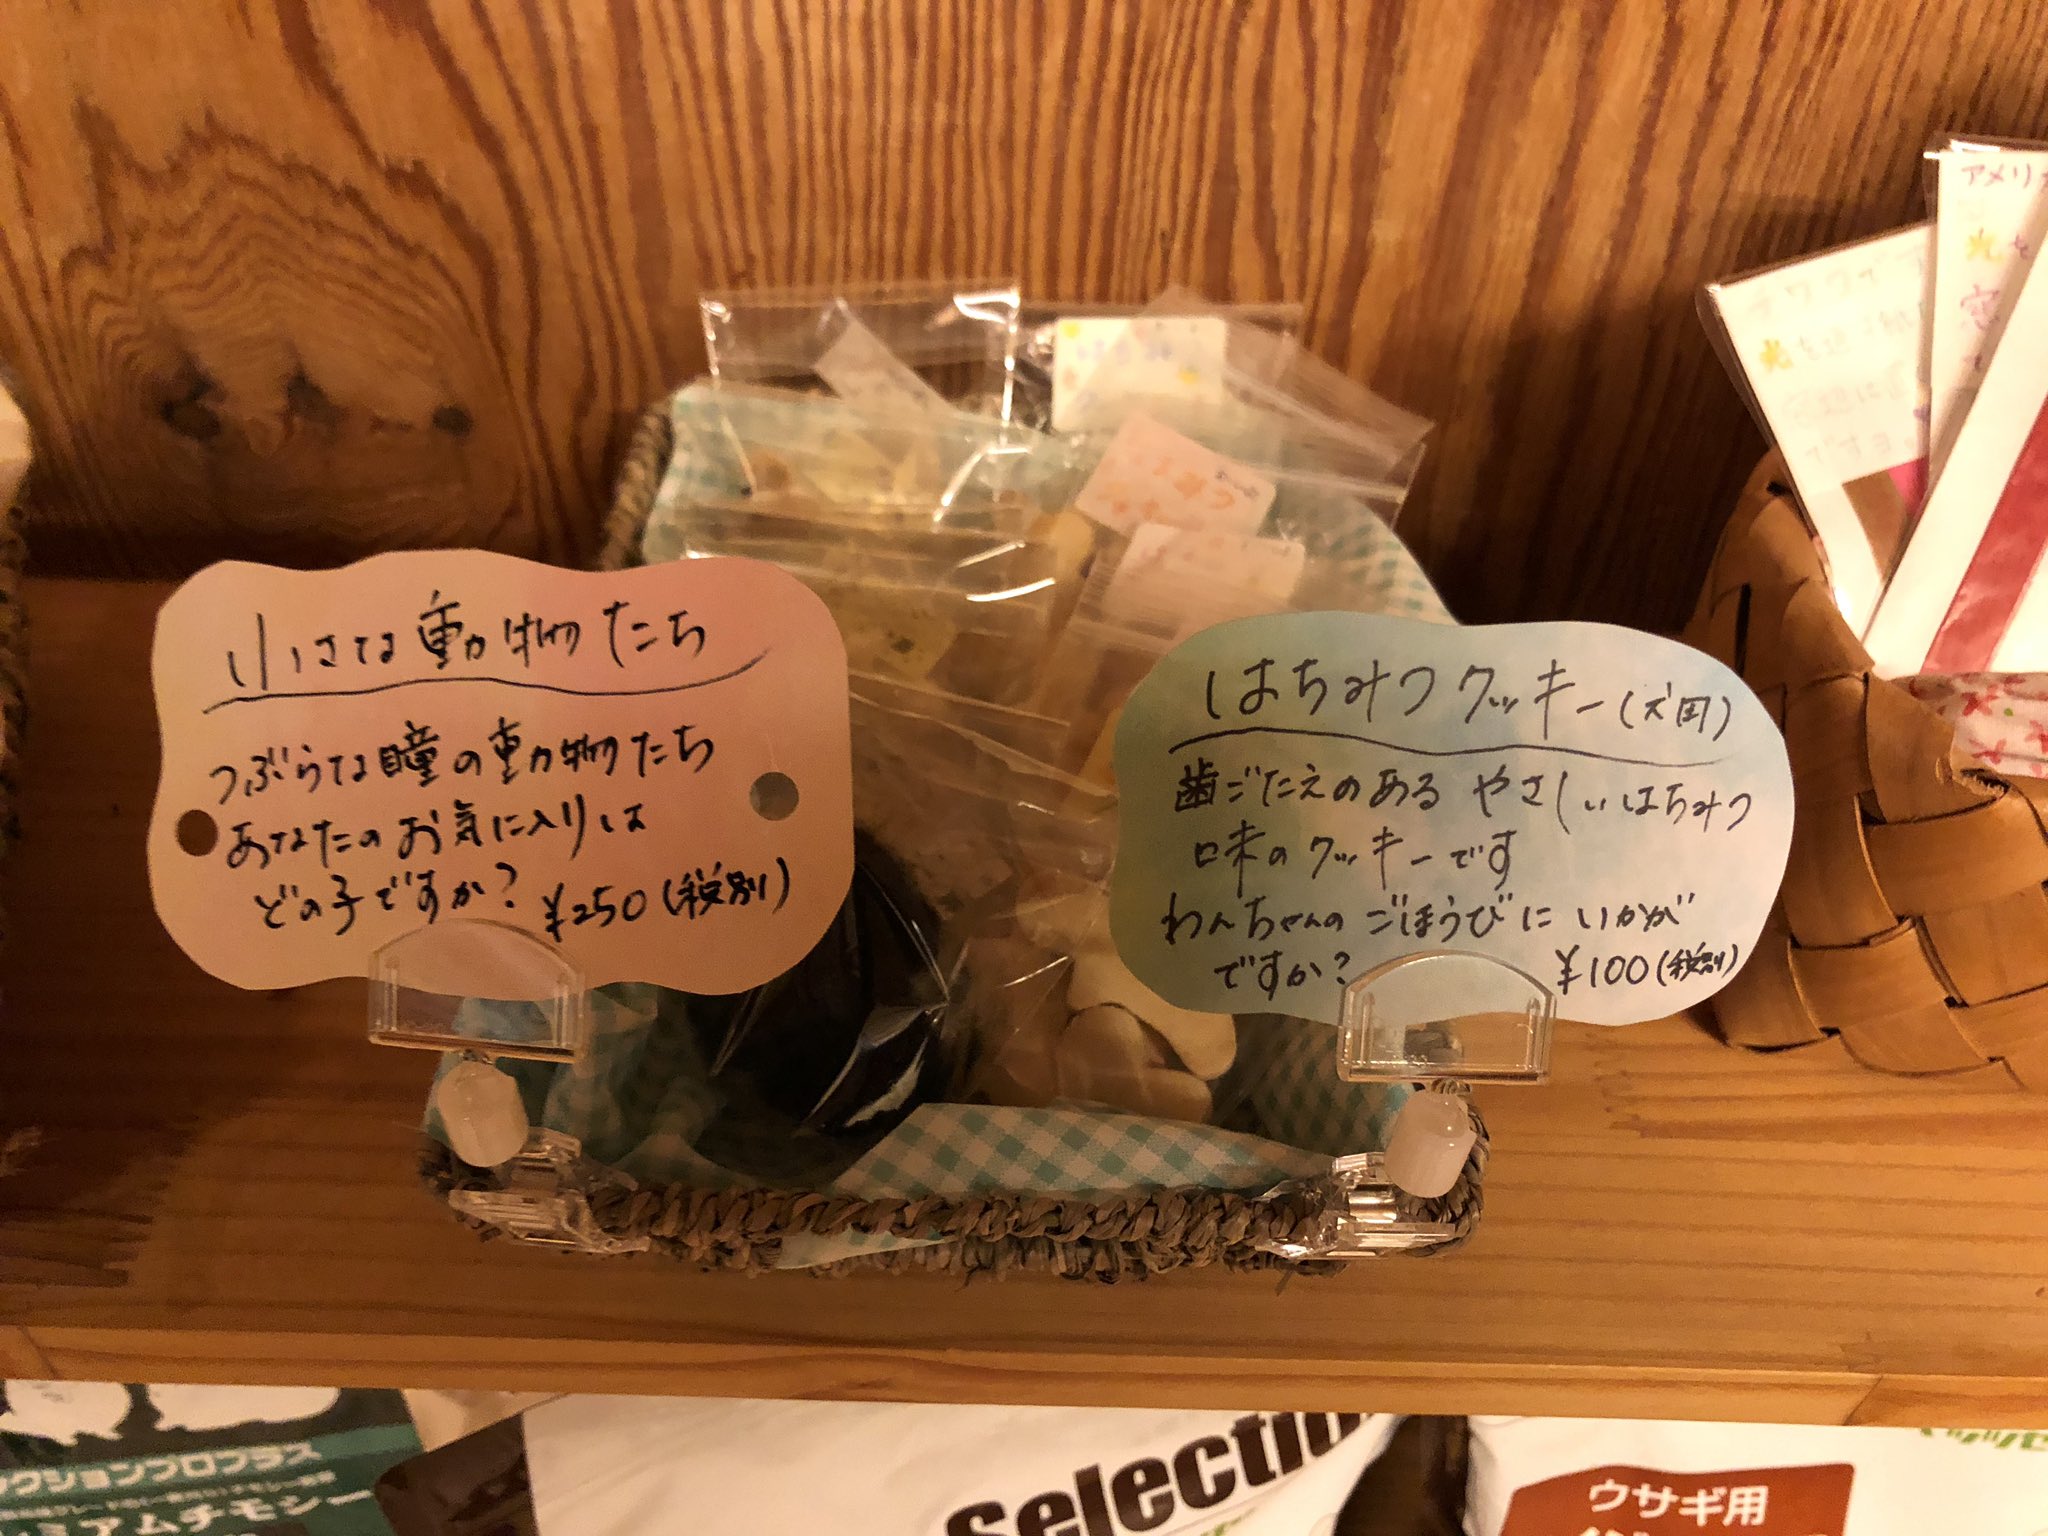 小さな動物たち
つぶらな瞳の動物たち
あなたのお気に入りは
どの子ですか?
¥250(税別)
はちみつクッキー(犬用)
歯ごたえのあるやさしいはちみつ
味のクッキーです
わんちゃんのごほうびにいかが
ですか?
¥100(税別)
はちみつ
アメリ
を
クションプロプラス
ミアムチモシー
Selectio
ウサギ用